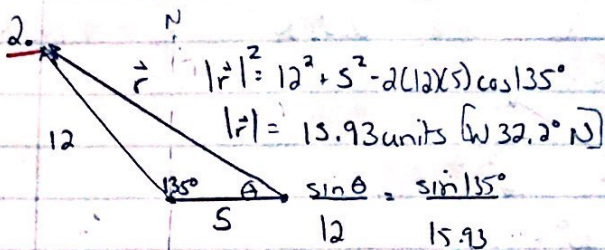 2.
N
r⃗ |r⃗|² = 12² + 5² - 2(12)(5) cos135°
|r⃗| = 15.93 units [W 32.2° N]
12
135° θ sinθ/12 = sin135°/15.93
5